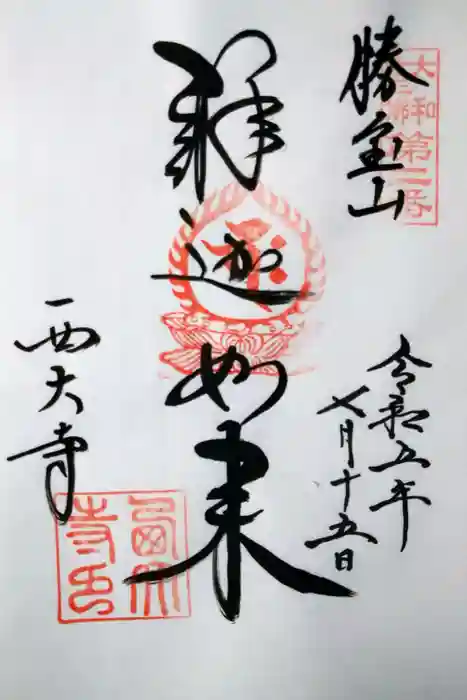 勝宝山
大和
第二番
令和五年
七月十五日
釋迦如来
西大寺
西大寺印